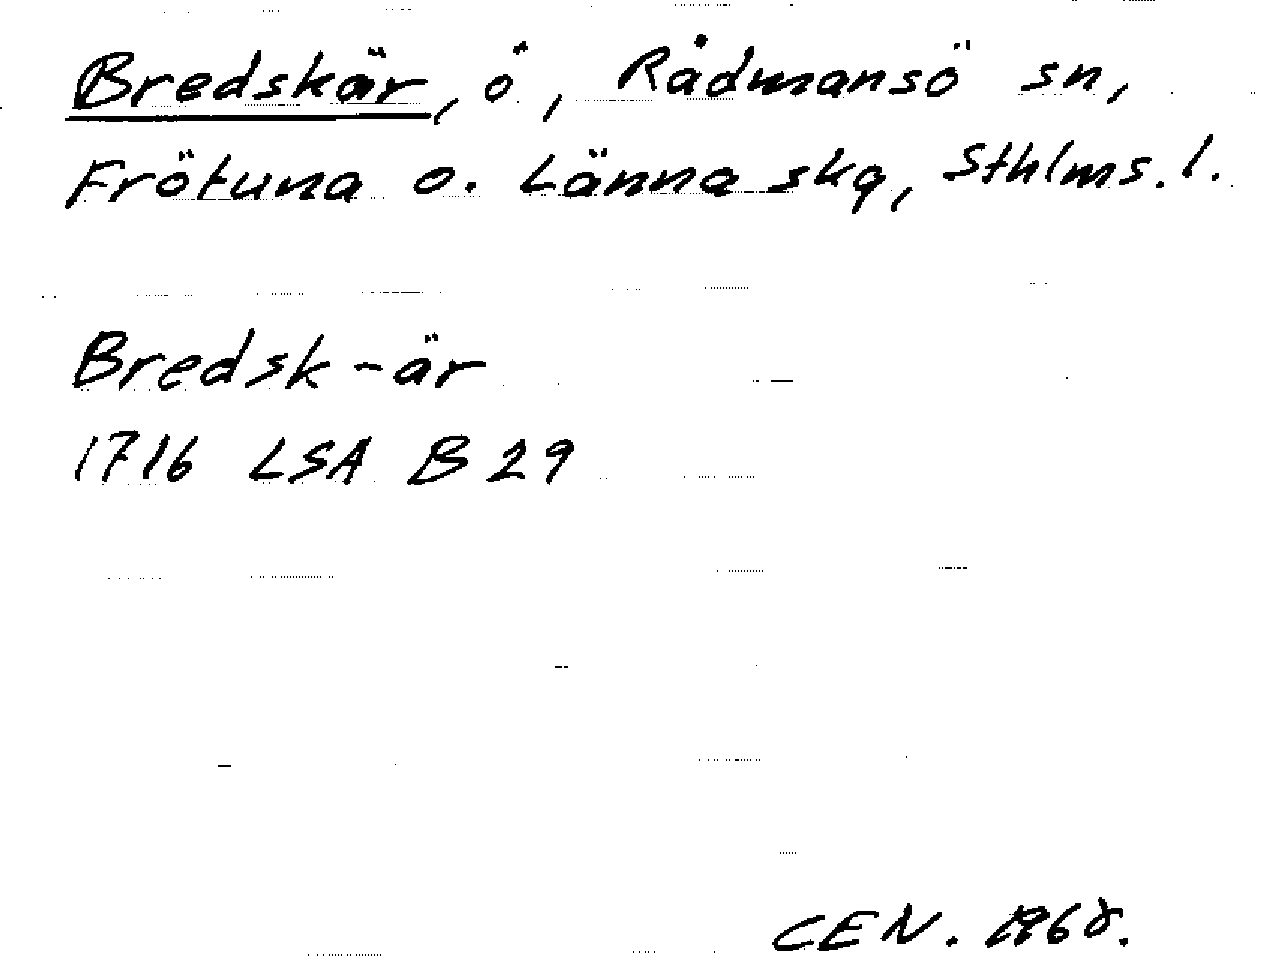 Bredskär, ö, Rådmansö sn,
Frötuna o. Länna skg, Sthlms. l.
Bredsk-är
1716 LSA B 29
CEN. 1968.